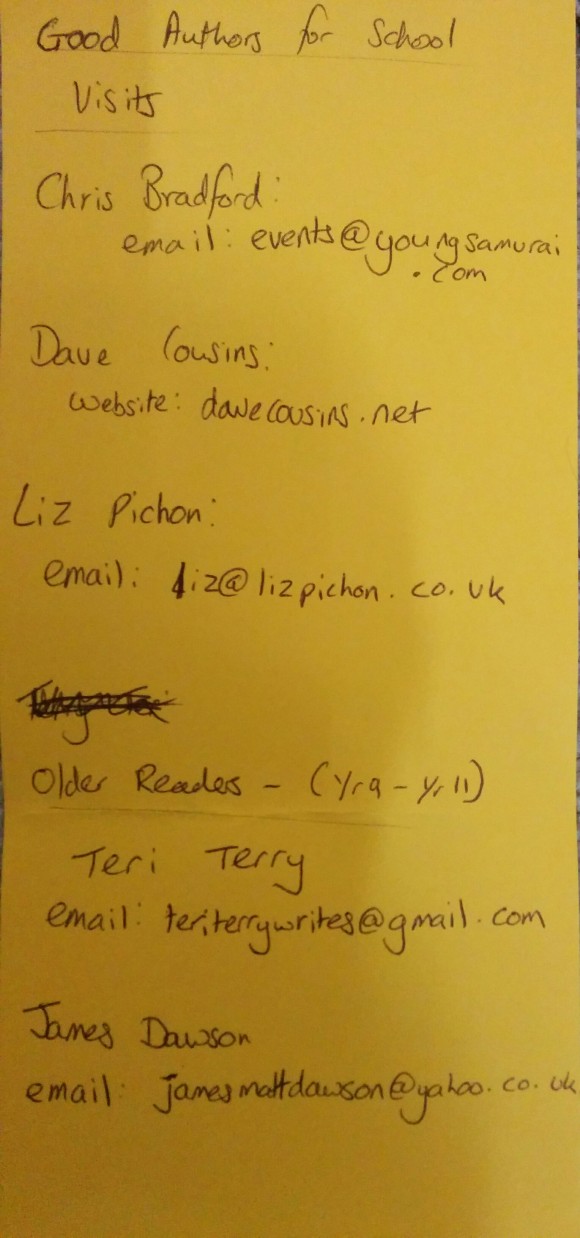 Good Authors for School
Visits
Chris Bradford:
email: events@youngsamurai
.com
Dave Cousins:
website: davecousins.net
Liz Pichon:
email: liz@lizpichon.co.uk
Older Readers - (Yr9 - Yr11)
Teri Terry
email: teriterrywrites@gmail.com
James Dawson
email: jamesmattdawson@yahoo.co.uk